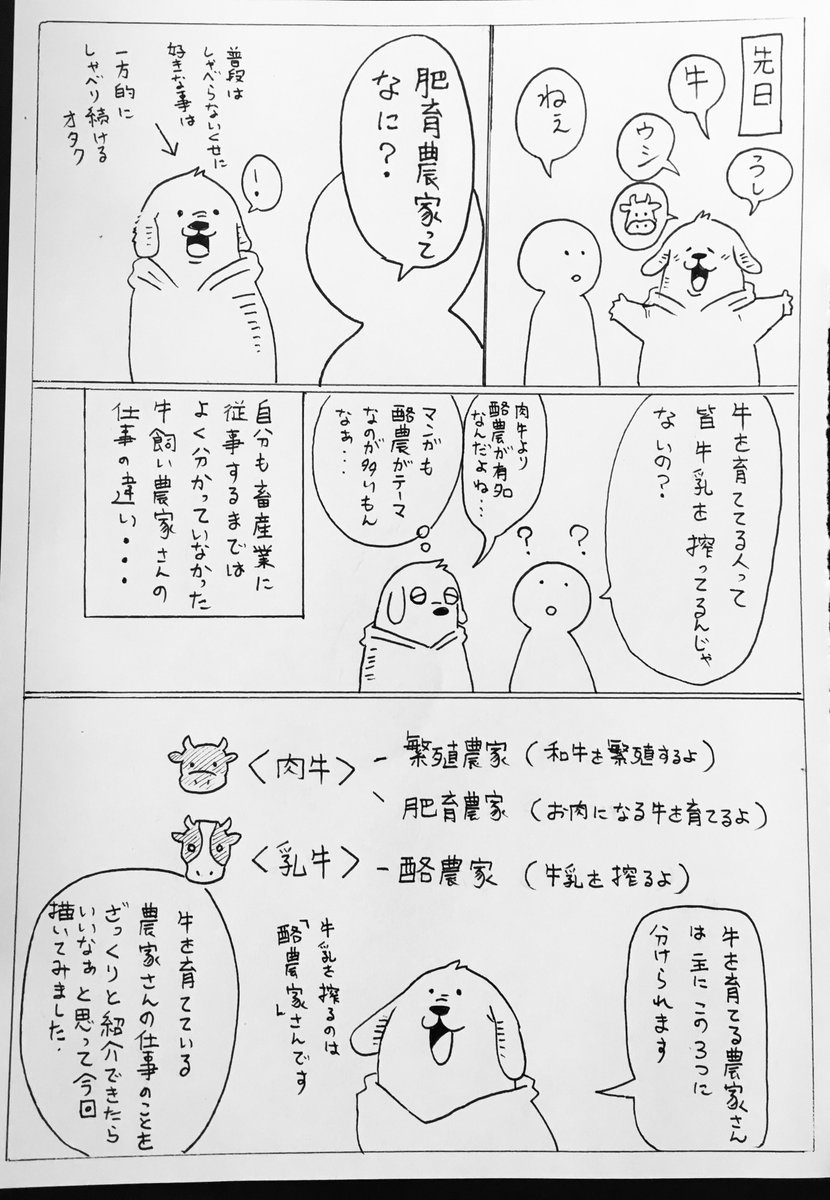 先日
うし
牛
ウシ
ねぇ
肥育農家って
なに?
!
普段は
しゃべらないくせに
好きな事は
一方的に
しゃべり続ける
オタク
牛を育ててる人って
皆牛乳を搾ってるんじゃ
ないの?
?
?
肉牛より
酪農が有名
なんだよね…
マンガも
酪農がテーマ
なのが多いもん
なぁ…
自分も畜産業に
従事するまでは
よく分かっていなかった
牛飼い農家さんの
仕事の違い・・・
〈肉牛〉 - 繁殖農家 (和牛を繁殖するよ)
肥育農家 (お肉になる牛を育てるよ)
〈乳牛〉 - 酪農家 (牛乳を搾るよ)
牛を育てる農家さん
は主にこの3つに
分けられます
牛乳を搾るのは
「酪農家さんです」
牛を育てている
農家さんの仕事のことを
ざっくりと紹介できたら
いいなぁと思って今回
描いてみました.